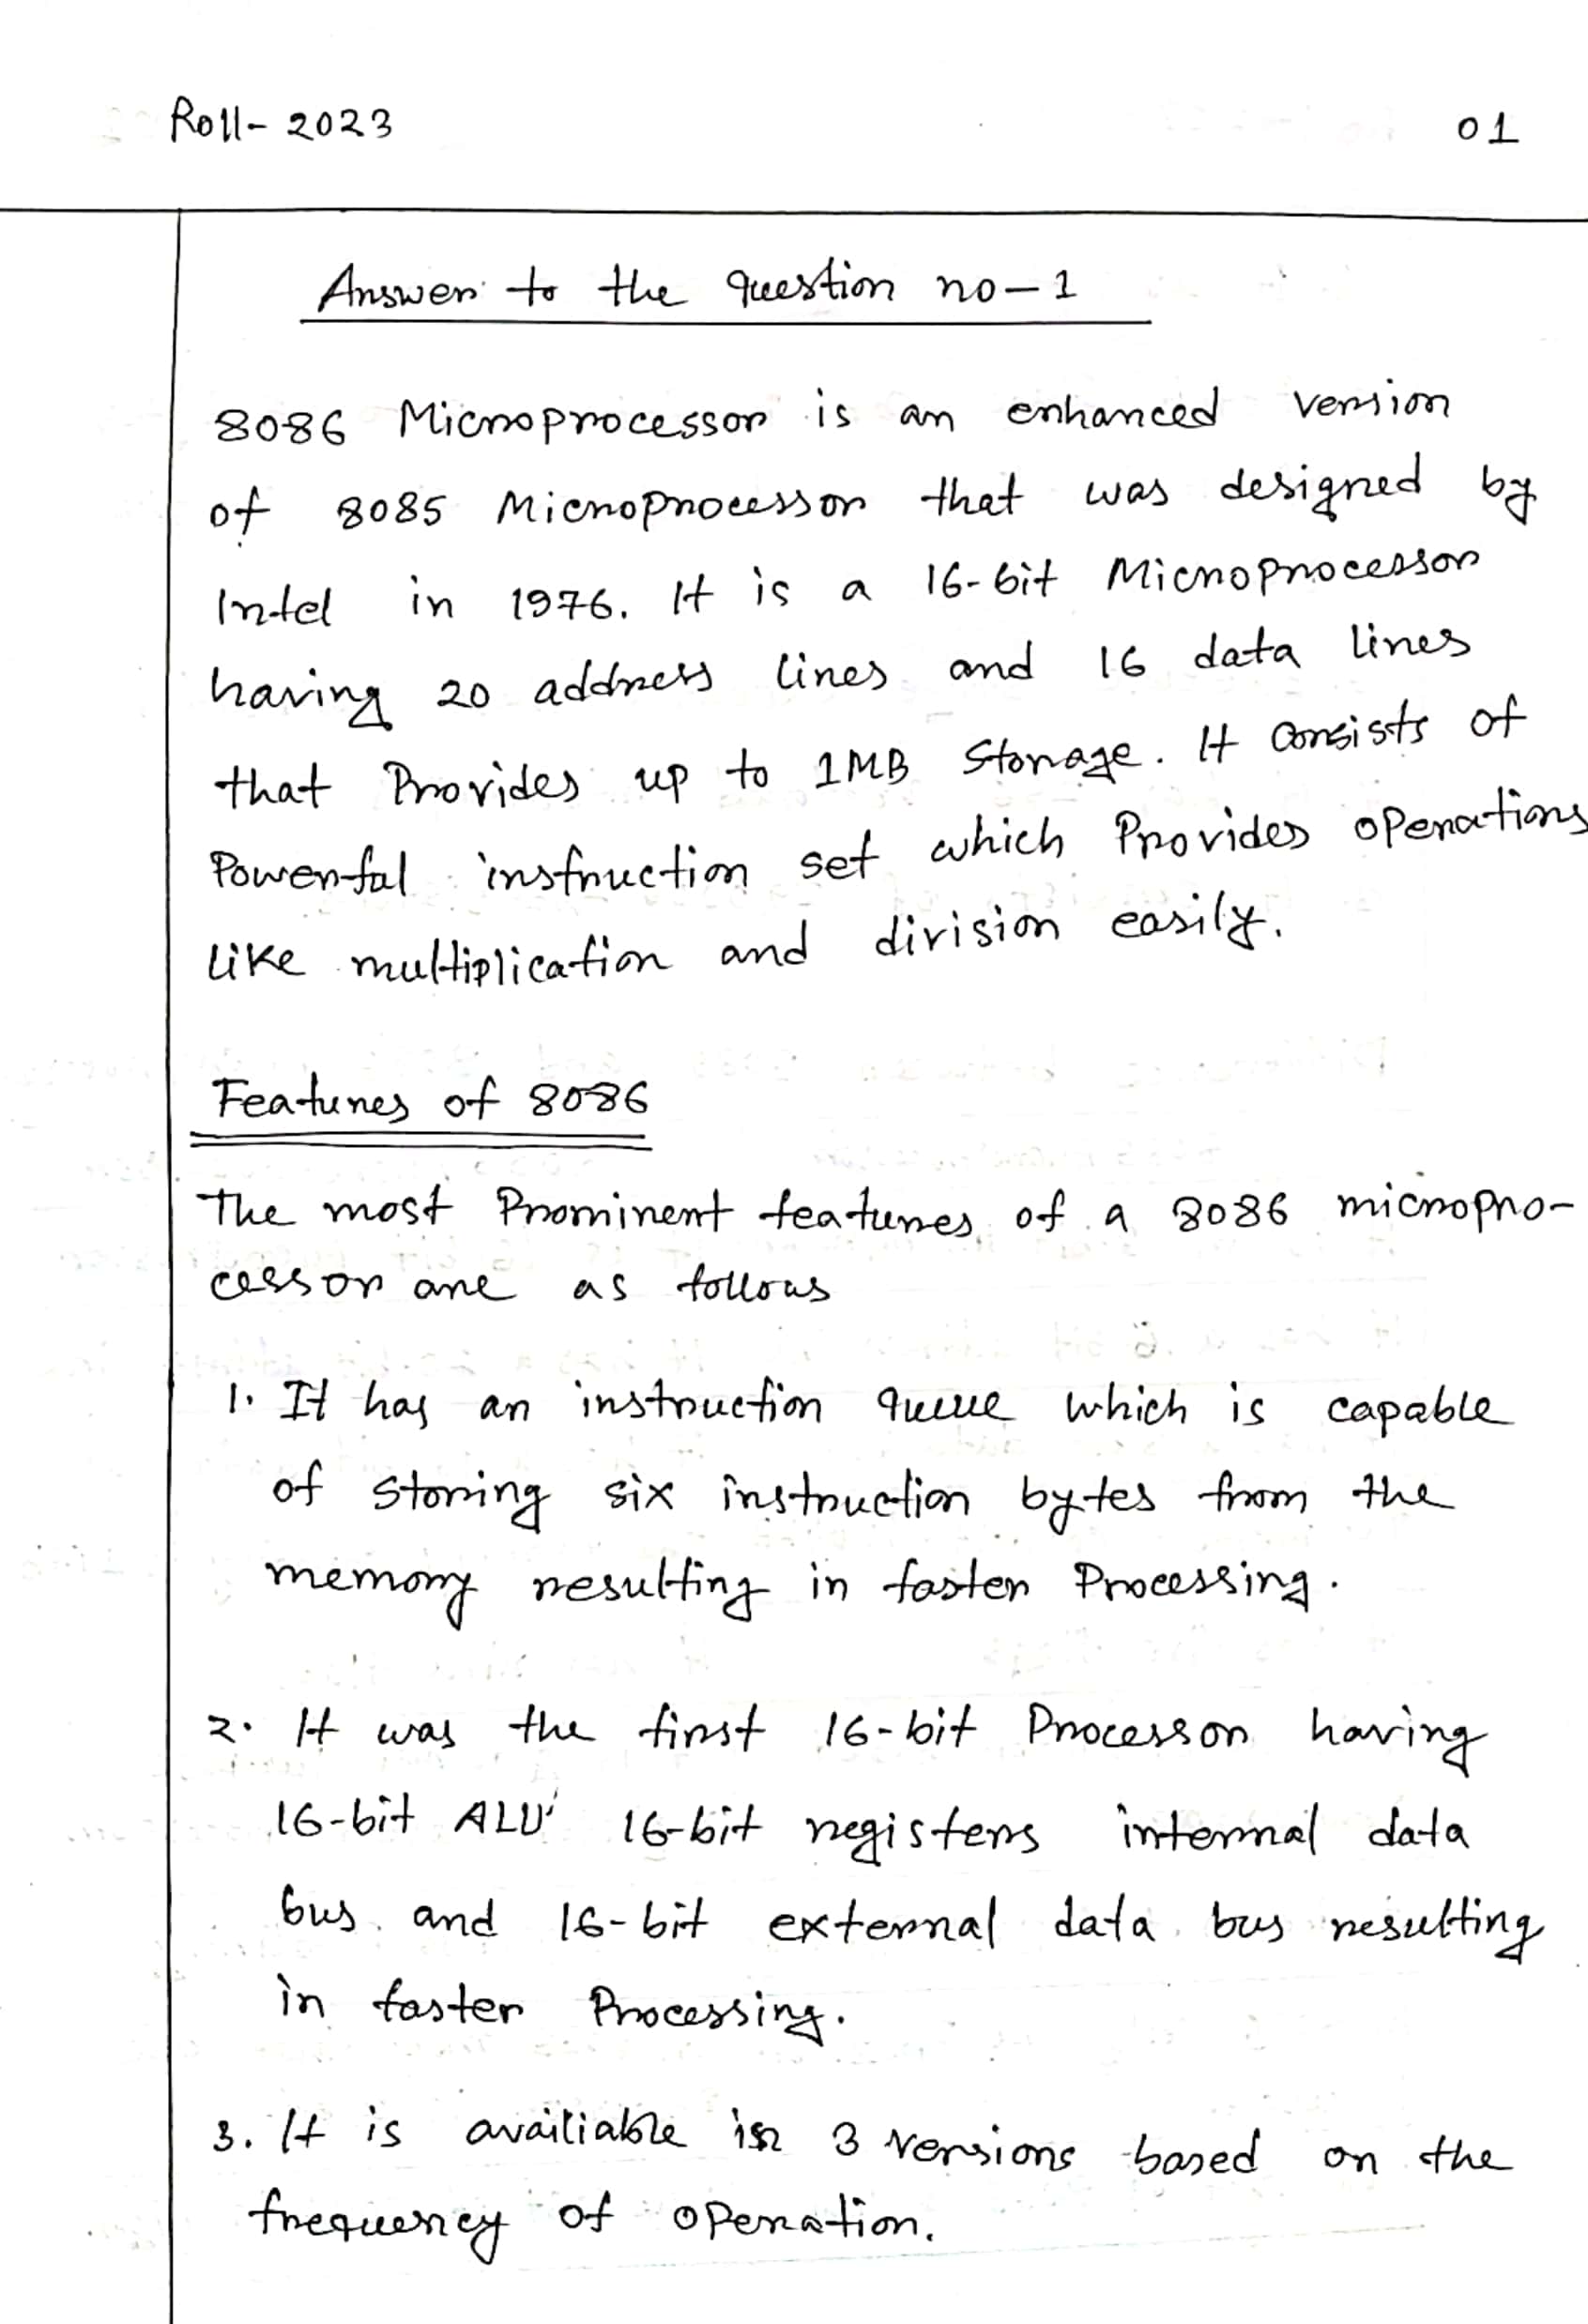 Roll- 2023
01
Answer to the question no-1
8086 Microprocessor is an enhanced version
of 8085 Microprocessor that was designed by
Intel in 1976. It is a 16-bit Microprocessor
having 20 address lines and 16 data lines
that Provides up to 1MB Storage. It consists of
Powerful instruction set which Provides operations
like multiplication and division easily.
Features of 8086
The most Prominent features of a 8086 micropro-
cessor are as follows
1. It has an instruction queue which is capable
of storing six instruction bytes from the
memory resulting in faster Processing.
2. It was the first 16-bit Processor having
16-bit ALU' 16-bit registers internal data
bus and 16-bit external data bus resulting
in faster Processing.
3. It is availiable in 3 versions based on the
frequency of operation.